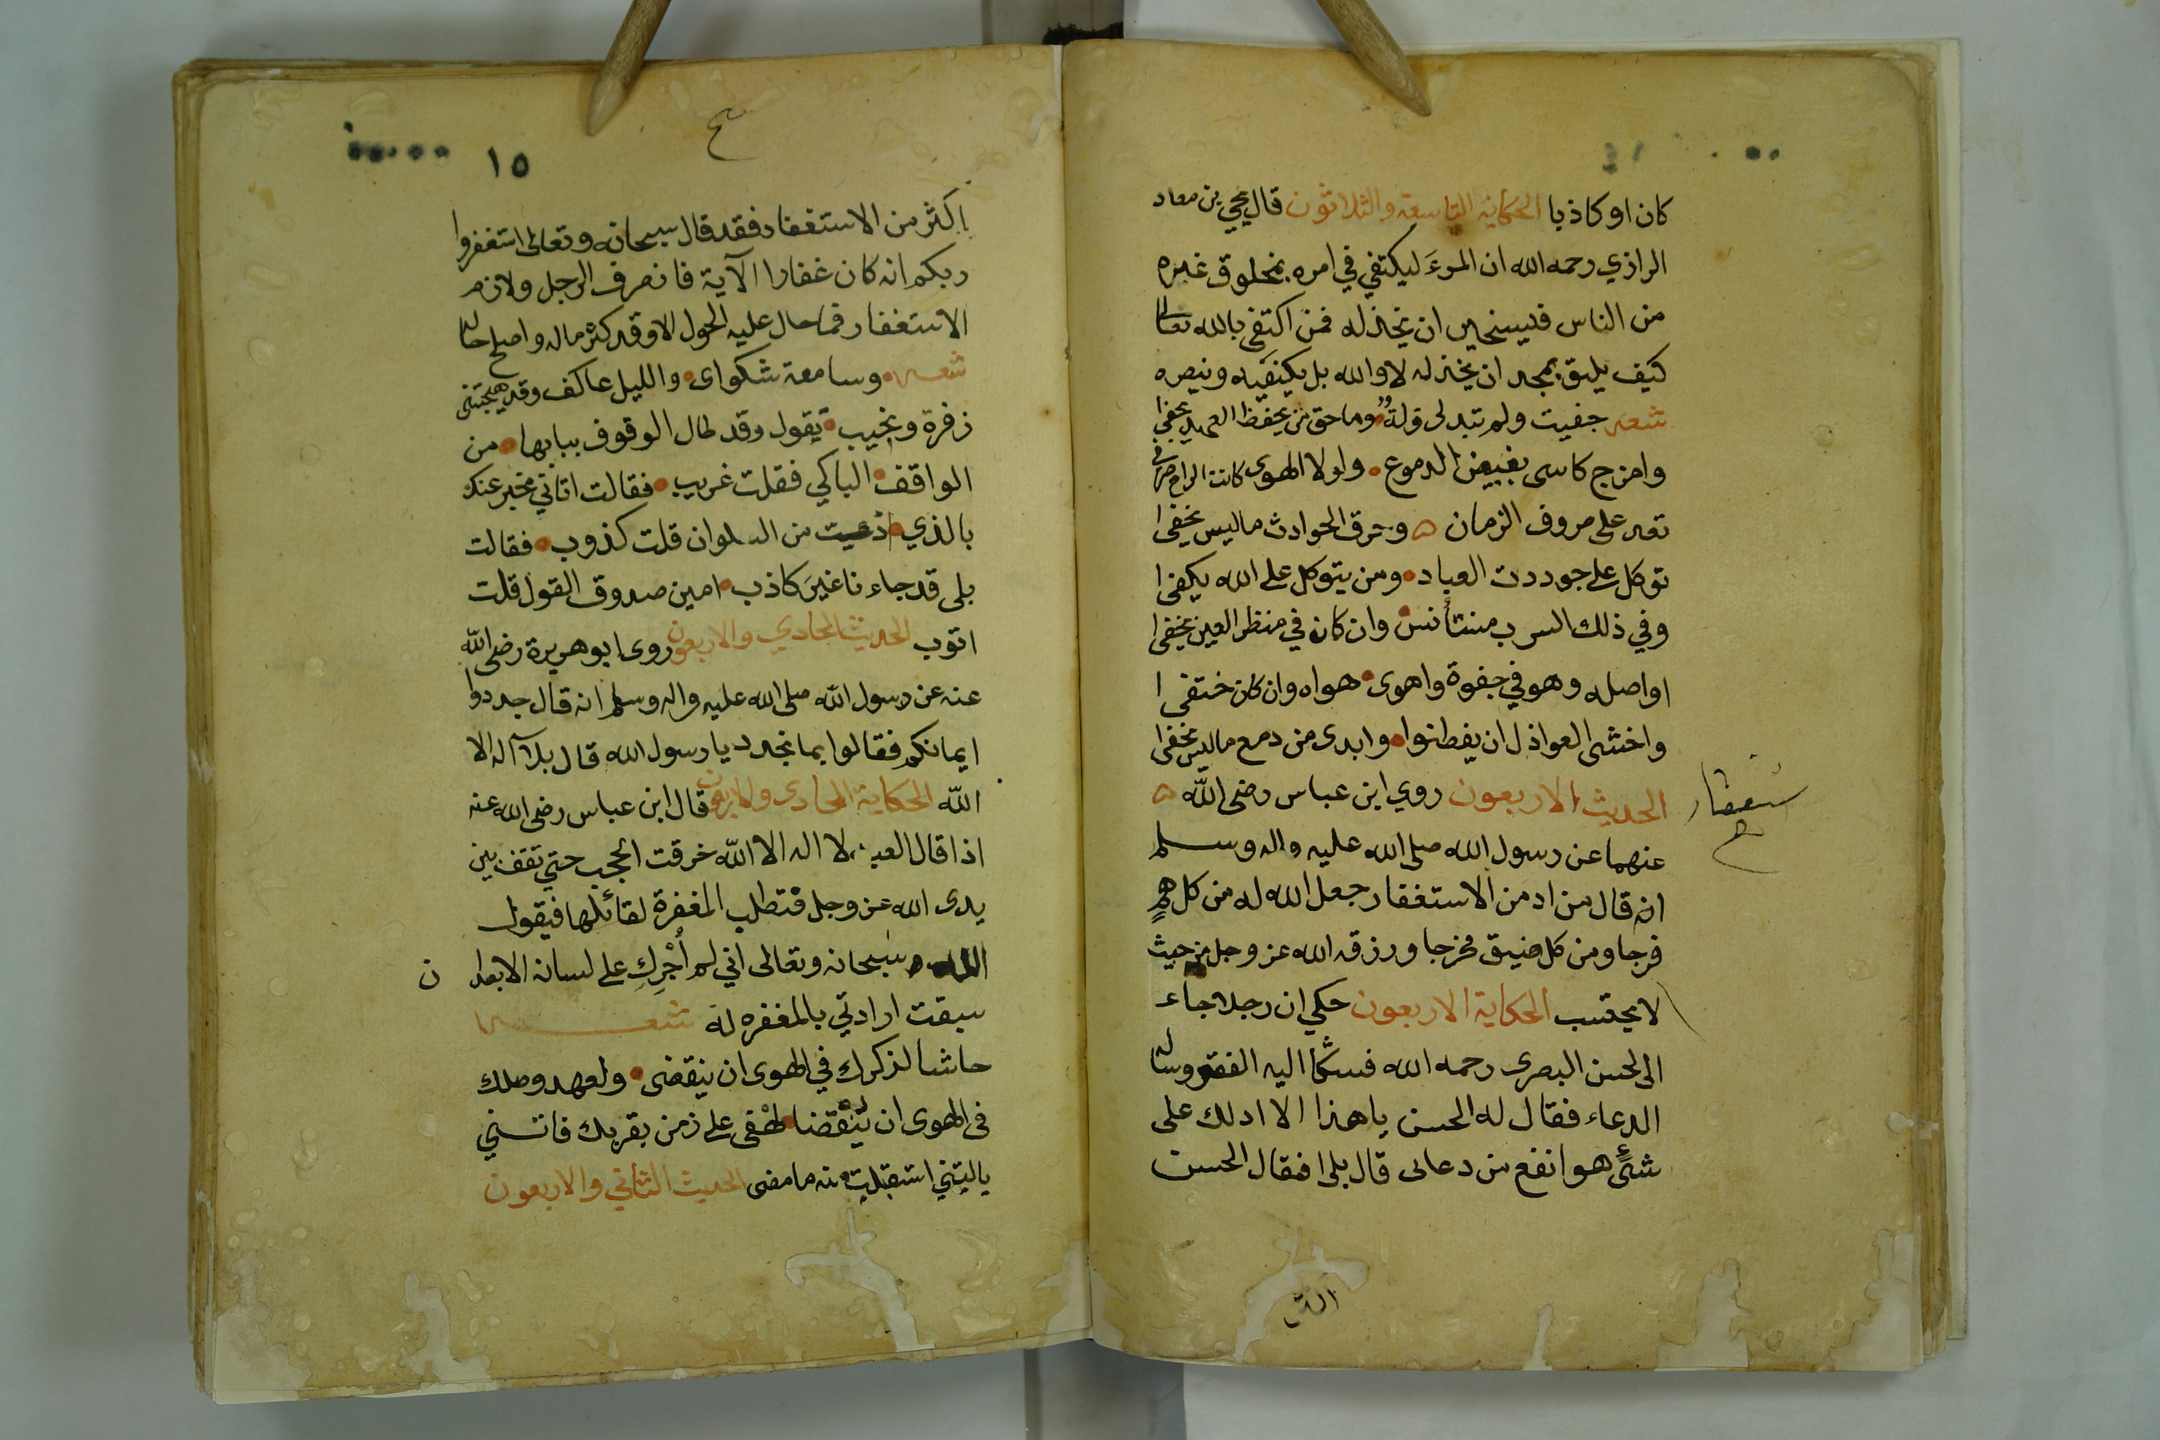 كان او كاذبا الحكاية التاسعة والثلاثون قال يحيى بن معاد
الرازي رحمه الله ان المرءَ ليكتفي في امره بمخلوق غيره
من الناس فيستحيى ان يخذله فمن اكتفى بالله تعالى
كيف يليق بمجد ان يخذله لا والله بل يكتفيه وينصره
شعر جفيت ولم تبد لى زلة وما حق من يحفظ العهد يجفا
وامزج كاسى بفيض الدموع ولولا الهوى كانت الراح صرفا
تعد على صروف الزمان وحرق الحوادث ماليس يخفى ا
توكل على جود رب العباد ومن يتوكل على الله يكفى ا
وفي ذلك السرب مستأنس وان كان في منظر العين يخفى ا
اواصله وهو في جفوة واهوى هواه وان كان ختفى ا
واخشى العواذل ان يفطنوا وابدى من دمع ماليس يخفى ا
الحديث الاربعون روي ابن عباس رضى الله
عنهما عن رسول الله صلى الله عليه واله وسلم
استغفار
انه قال من ادمن الاستغفار جعل الله له من كل همٍ
فرجا ومن كل ضيق مخرجا ورزقه الله عز وجل من حيث
لا يحتسب الحكاية الاربعون حكي ان رجلا جاء
الى الحسن البصرى رحمه الله فشكا اليه الفقر وساله
الدعاء فقال له الحسن يا هذا الا ادلك على
شئ هو انفع من دعائى قال بلى ا فقال الحسن
١٥
اكثر من الاستغفار فقد قال سبحانه وتعالى استغفروا
ربكم انه كان غفارا الآية فانصرف الرجل ولازم
الاستغفار فما حال عليه الحول الا وقد كثر ماله واصلح حاله
شعر وسامعة شكواى والليل عاكف وقد هيجتنى
زفرة ونحيب تقول وقد طال الوقوف ببابها من
الواقف الباكي فقلت غريب فقالت اتاني مخبر عنك
بالذي ادعيت من السلوان قلت كذوب فقالت
بلى قد جاءنا غير كاذب امين صدوق القول قلت
اتوب الحديث الحادي والاربعون روى ابو هريرة رضى الله
عنه عن رسول الله صلى الله عليه واله وسلم انه قال جددوا
ايمانكم فقالوا بما نجدد يا رسول الله قال بلا آله الا
الله الحكاية الحادى والاربعون قال ابن عباس رضى الله عنه
اذا قال العبد لا اله الا الله خرقت الحجب حتي تقف بين
يدى الله عز وجل فتطلب المغفرة لقائلها فيقول
الله سبحانه وتعالى اني لم أُجْرِكِ على لسانه الا بعد ان
سبقت ارادتي بالمغفره له شعر
حاشا لذكرك في الهوى ان ينقضى ولعهد وصلك
فى الهوى ان يُنْقضا لهْفى على زمن بقربك فاتنى
ياليتني استقبلت منه ما مضى الحديث الثاني والاربعون